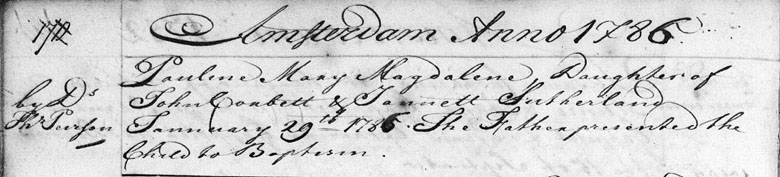 Amsterdam Anno 1786.
Pauline Mary Magdalene, Daughter of
by Ds John Corbett & Jannett Sutherland
Thr Pierson Jannuary 29th 1786. The Father presented the
Child to Baptism.